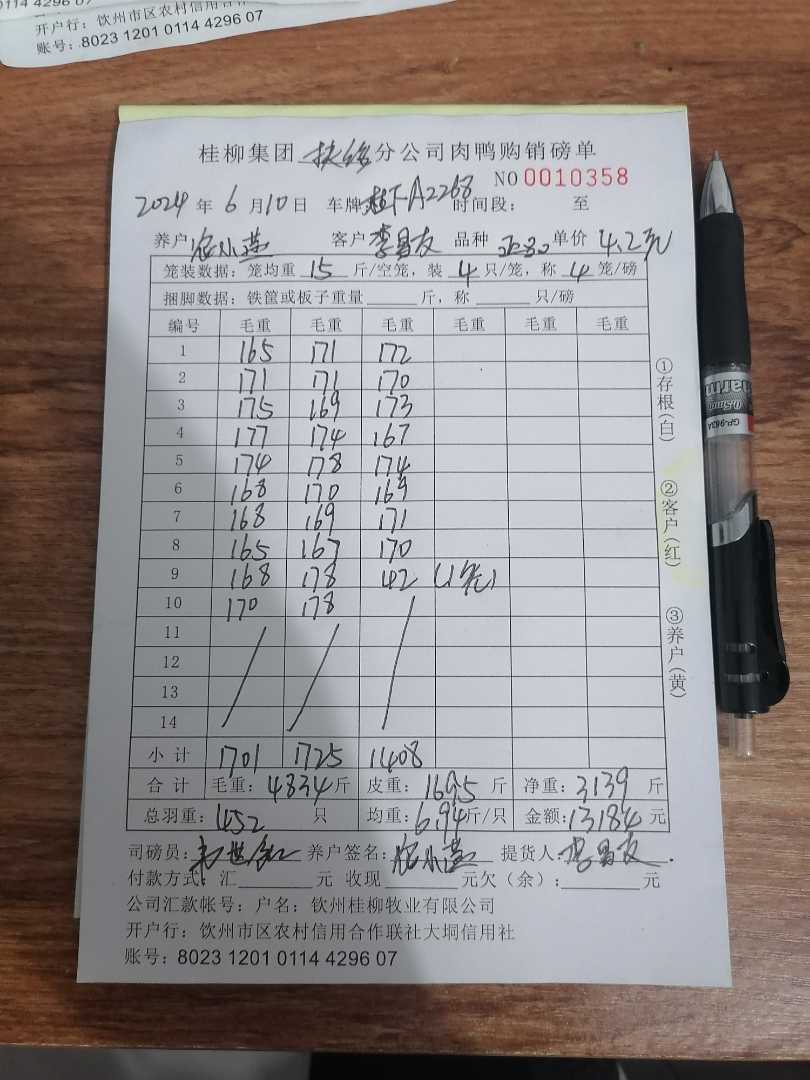 0114 4296 07
开户行：钦州市区农村信用合作
账号：8023 1201 0114 4296 07
桂柳集团 扶绥 分公司肉鸭购销磅单
NO 0010358
2024 年 6 月 10 日 车牌 A2268 时间段： 至
养户 小燕 客户 李昌友 品种 单价 4.2元
笼装数据：笼均重 15 斤/空笼，装 4 只/笼，称 4 笼/磅
捆脚数据：铁筐或板子重量 斤，称 只/磅
编号 毛重 毛重 毛重 毛重 毛重 毛重
1 165 171 172
2 171 171 170
3 175 169 173
4 177 174 167
5 174 178 174
6 168 170 169
7 168 169 171
8 165 167 170
9 168 178 42 (1笼)
10 170 178
11
12
13
14
小计 1701 1725 1408
合计 毛重：4834斤 皮重：1695 斤 净重：3139 斤
总羽重：452 只 均重：6.94斤/只 金额：13184 元
司磅员： 养户签名： 小燕 提货人：李昌友
付款方式：汇 元 收现 元欠（余）： 元
公司汇款帐号：户名：钦州桂柳牧业有限公司
开户行：钦州市区农村信用合作联社大垌信用社
账号：8023 1201 0114 4296 07
①存根(白)
②客户(红)
③养户(黄)